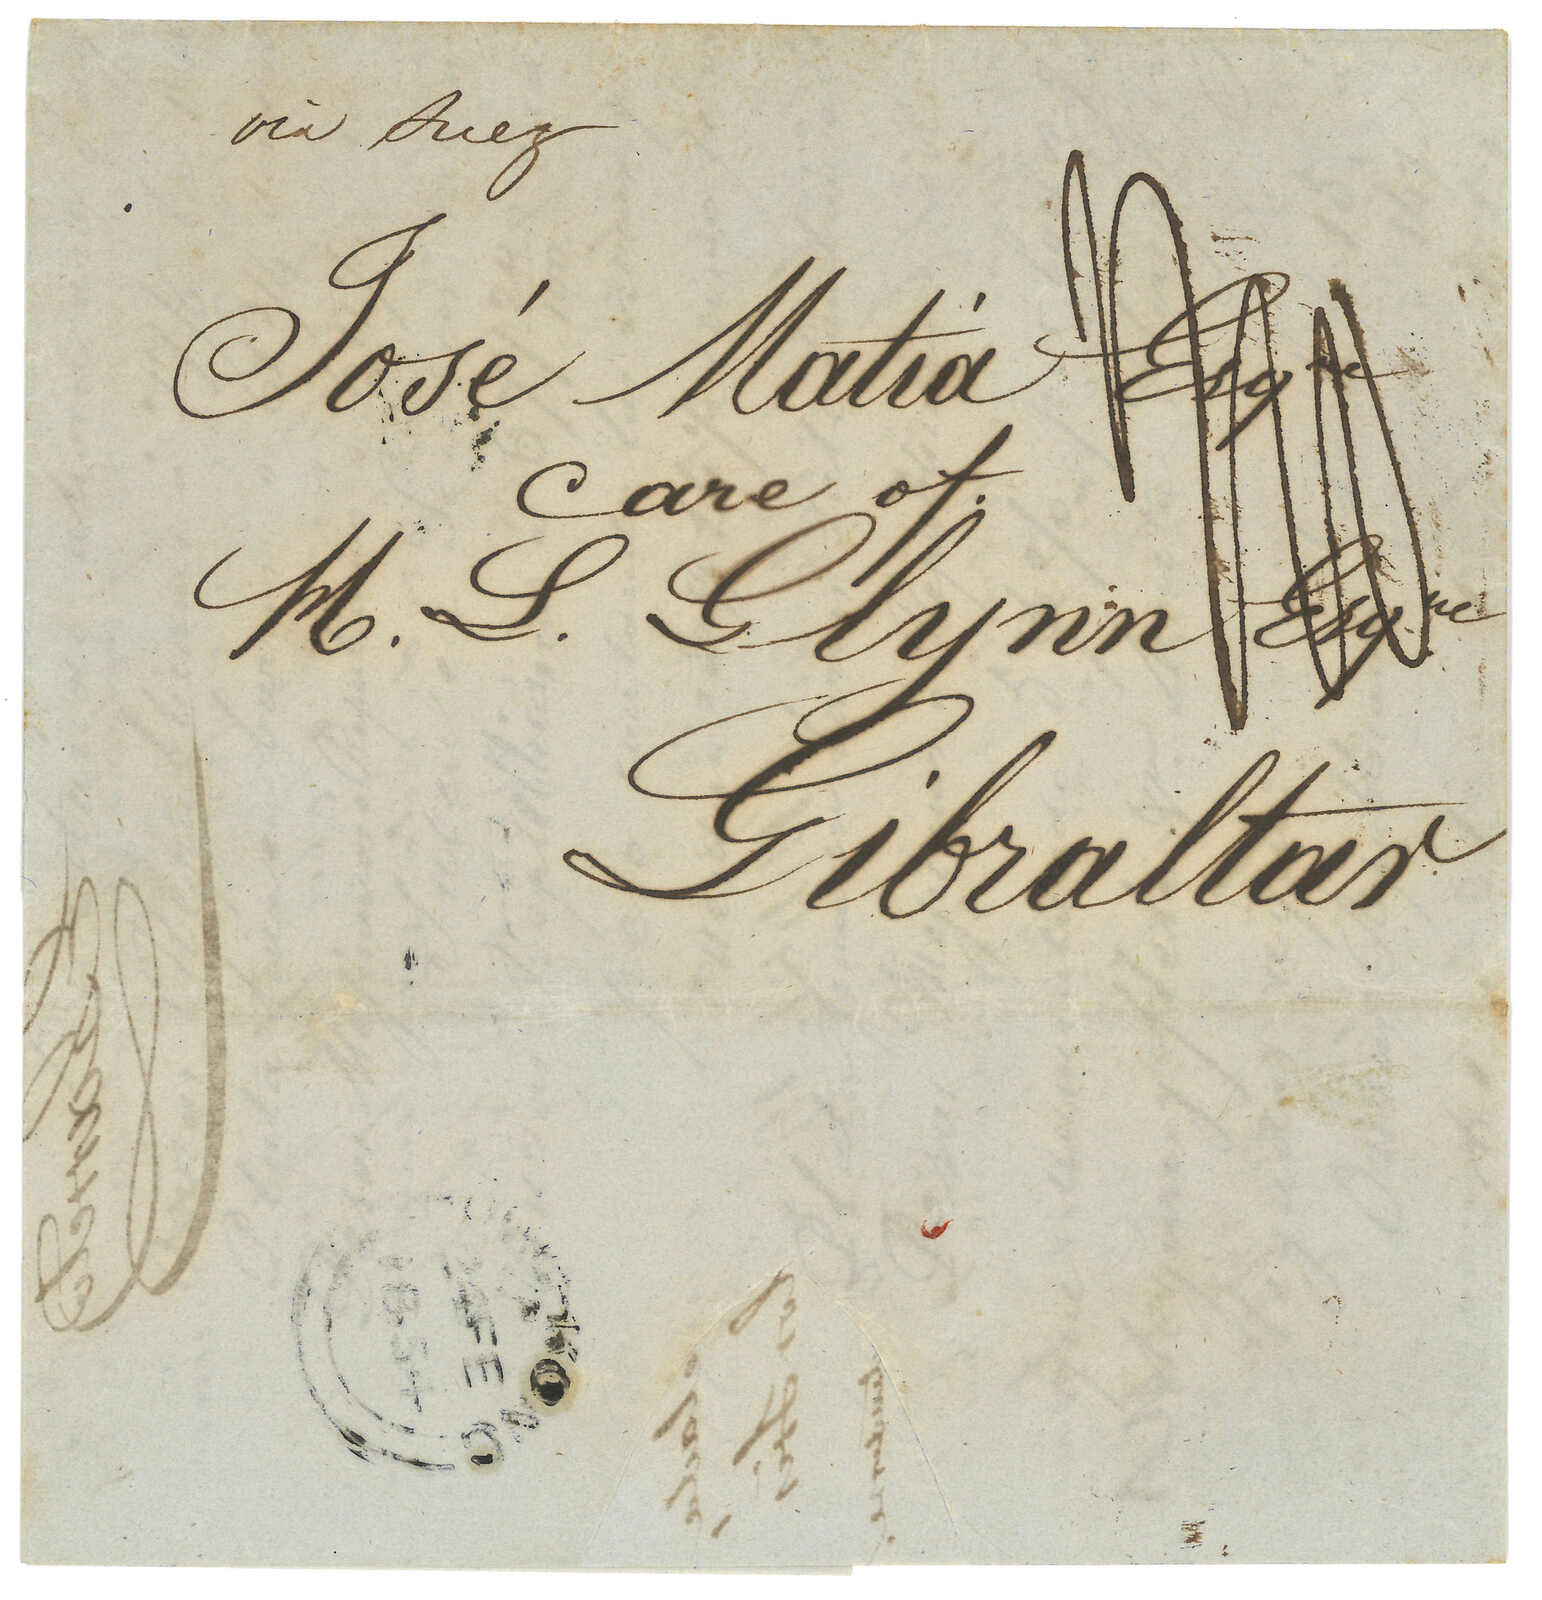 via Suez
José Matia Esqre
care of
M. L. Glynn Esqre
Gibraltar